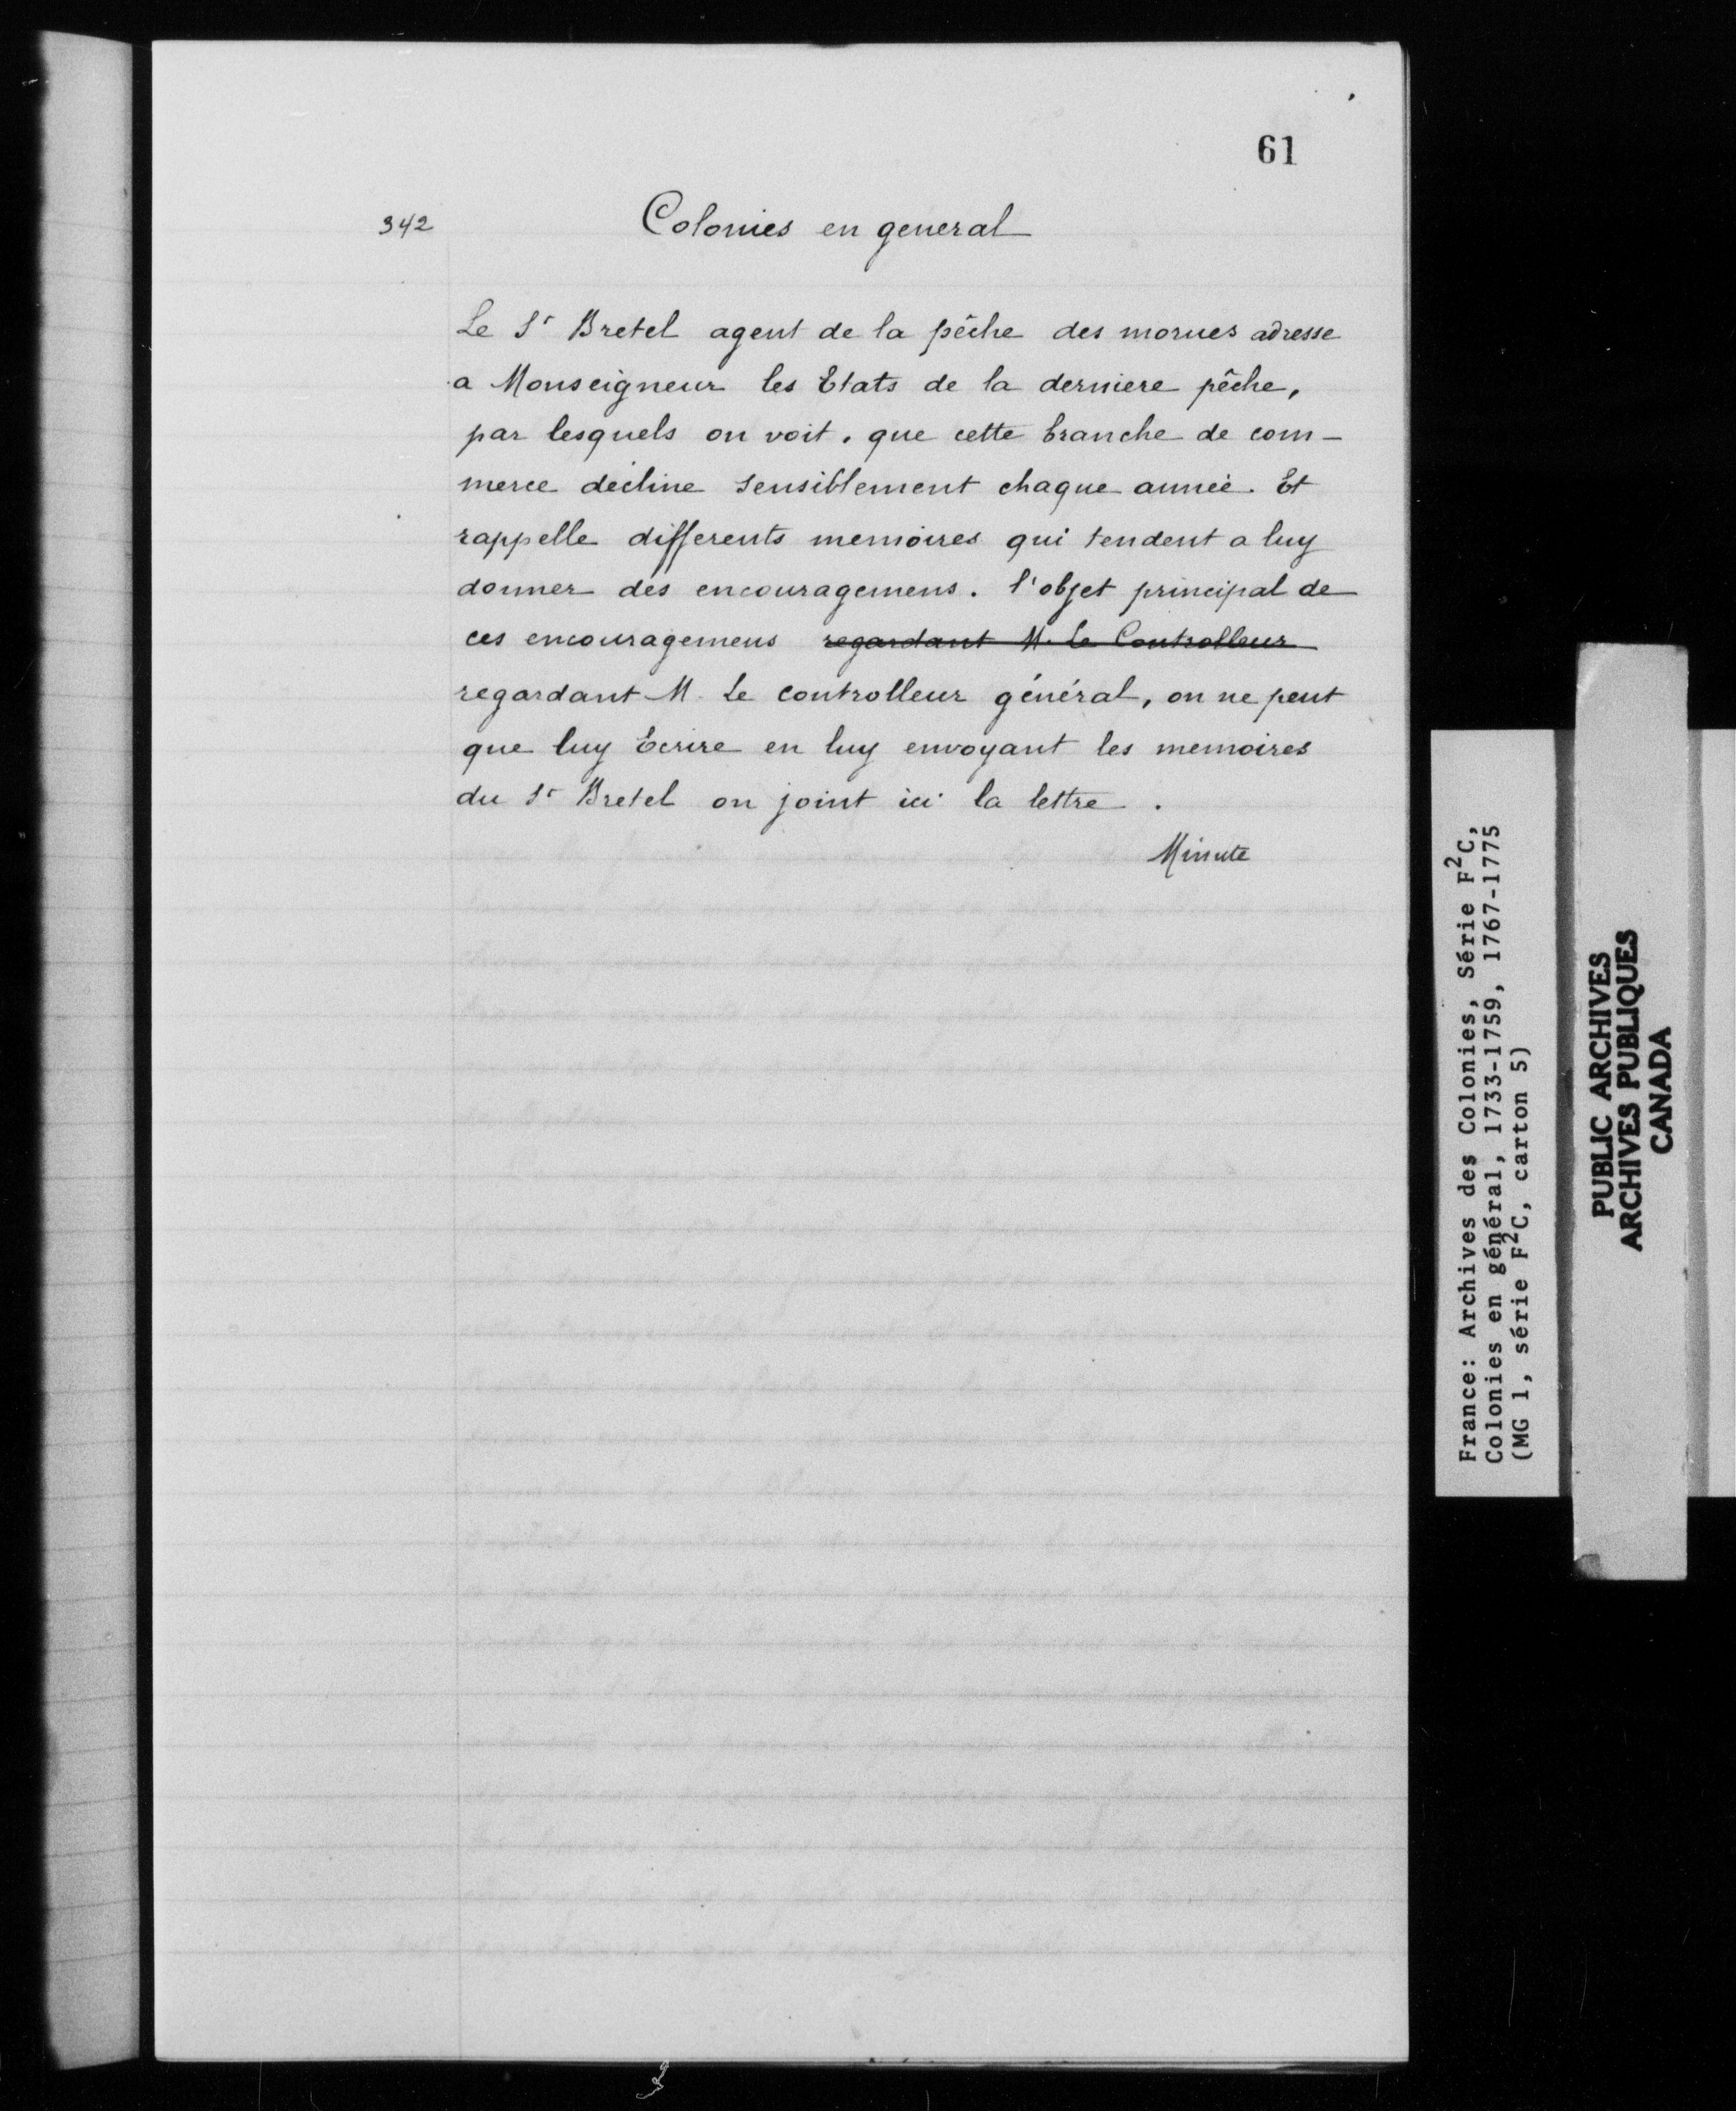 61
342
Colonies en general
Le Sr Bretel agent de la pêche des morues adresse
a Monseigneur les Etats de la derniere pêche,
par lesquels on voit. que cette branche de com-
merce décline sensiblement chaque année. Et
rappelle differents memoires qui tendent a luy
donner des encouragemens. l'objet principal de
ces encouragemens regardant M. Le Controlleur
regardant M. Le controlleur général, on ne peut
que luy Ecrire en luy envoyant les memoires
du Sr Bretel on joint ici la lettre.
Minute
France: Archives des Colonies, Série F2C,
Colonies en général, 1733-1759, 1767-1775
(MG 1, série F2C, carton 5)
PUBLIC ARCHIVES
ARCHIVES PUBLIQUES
CANADA